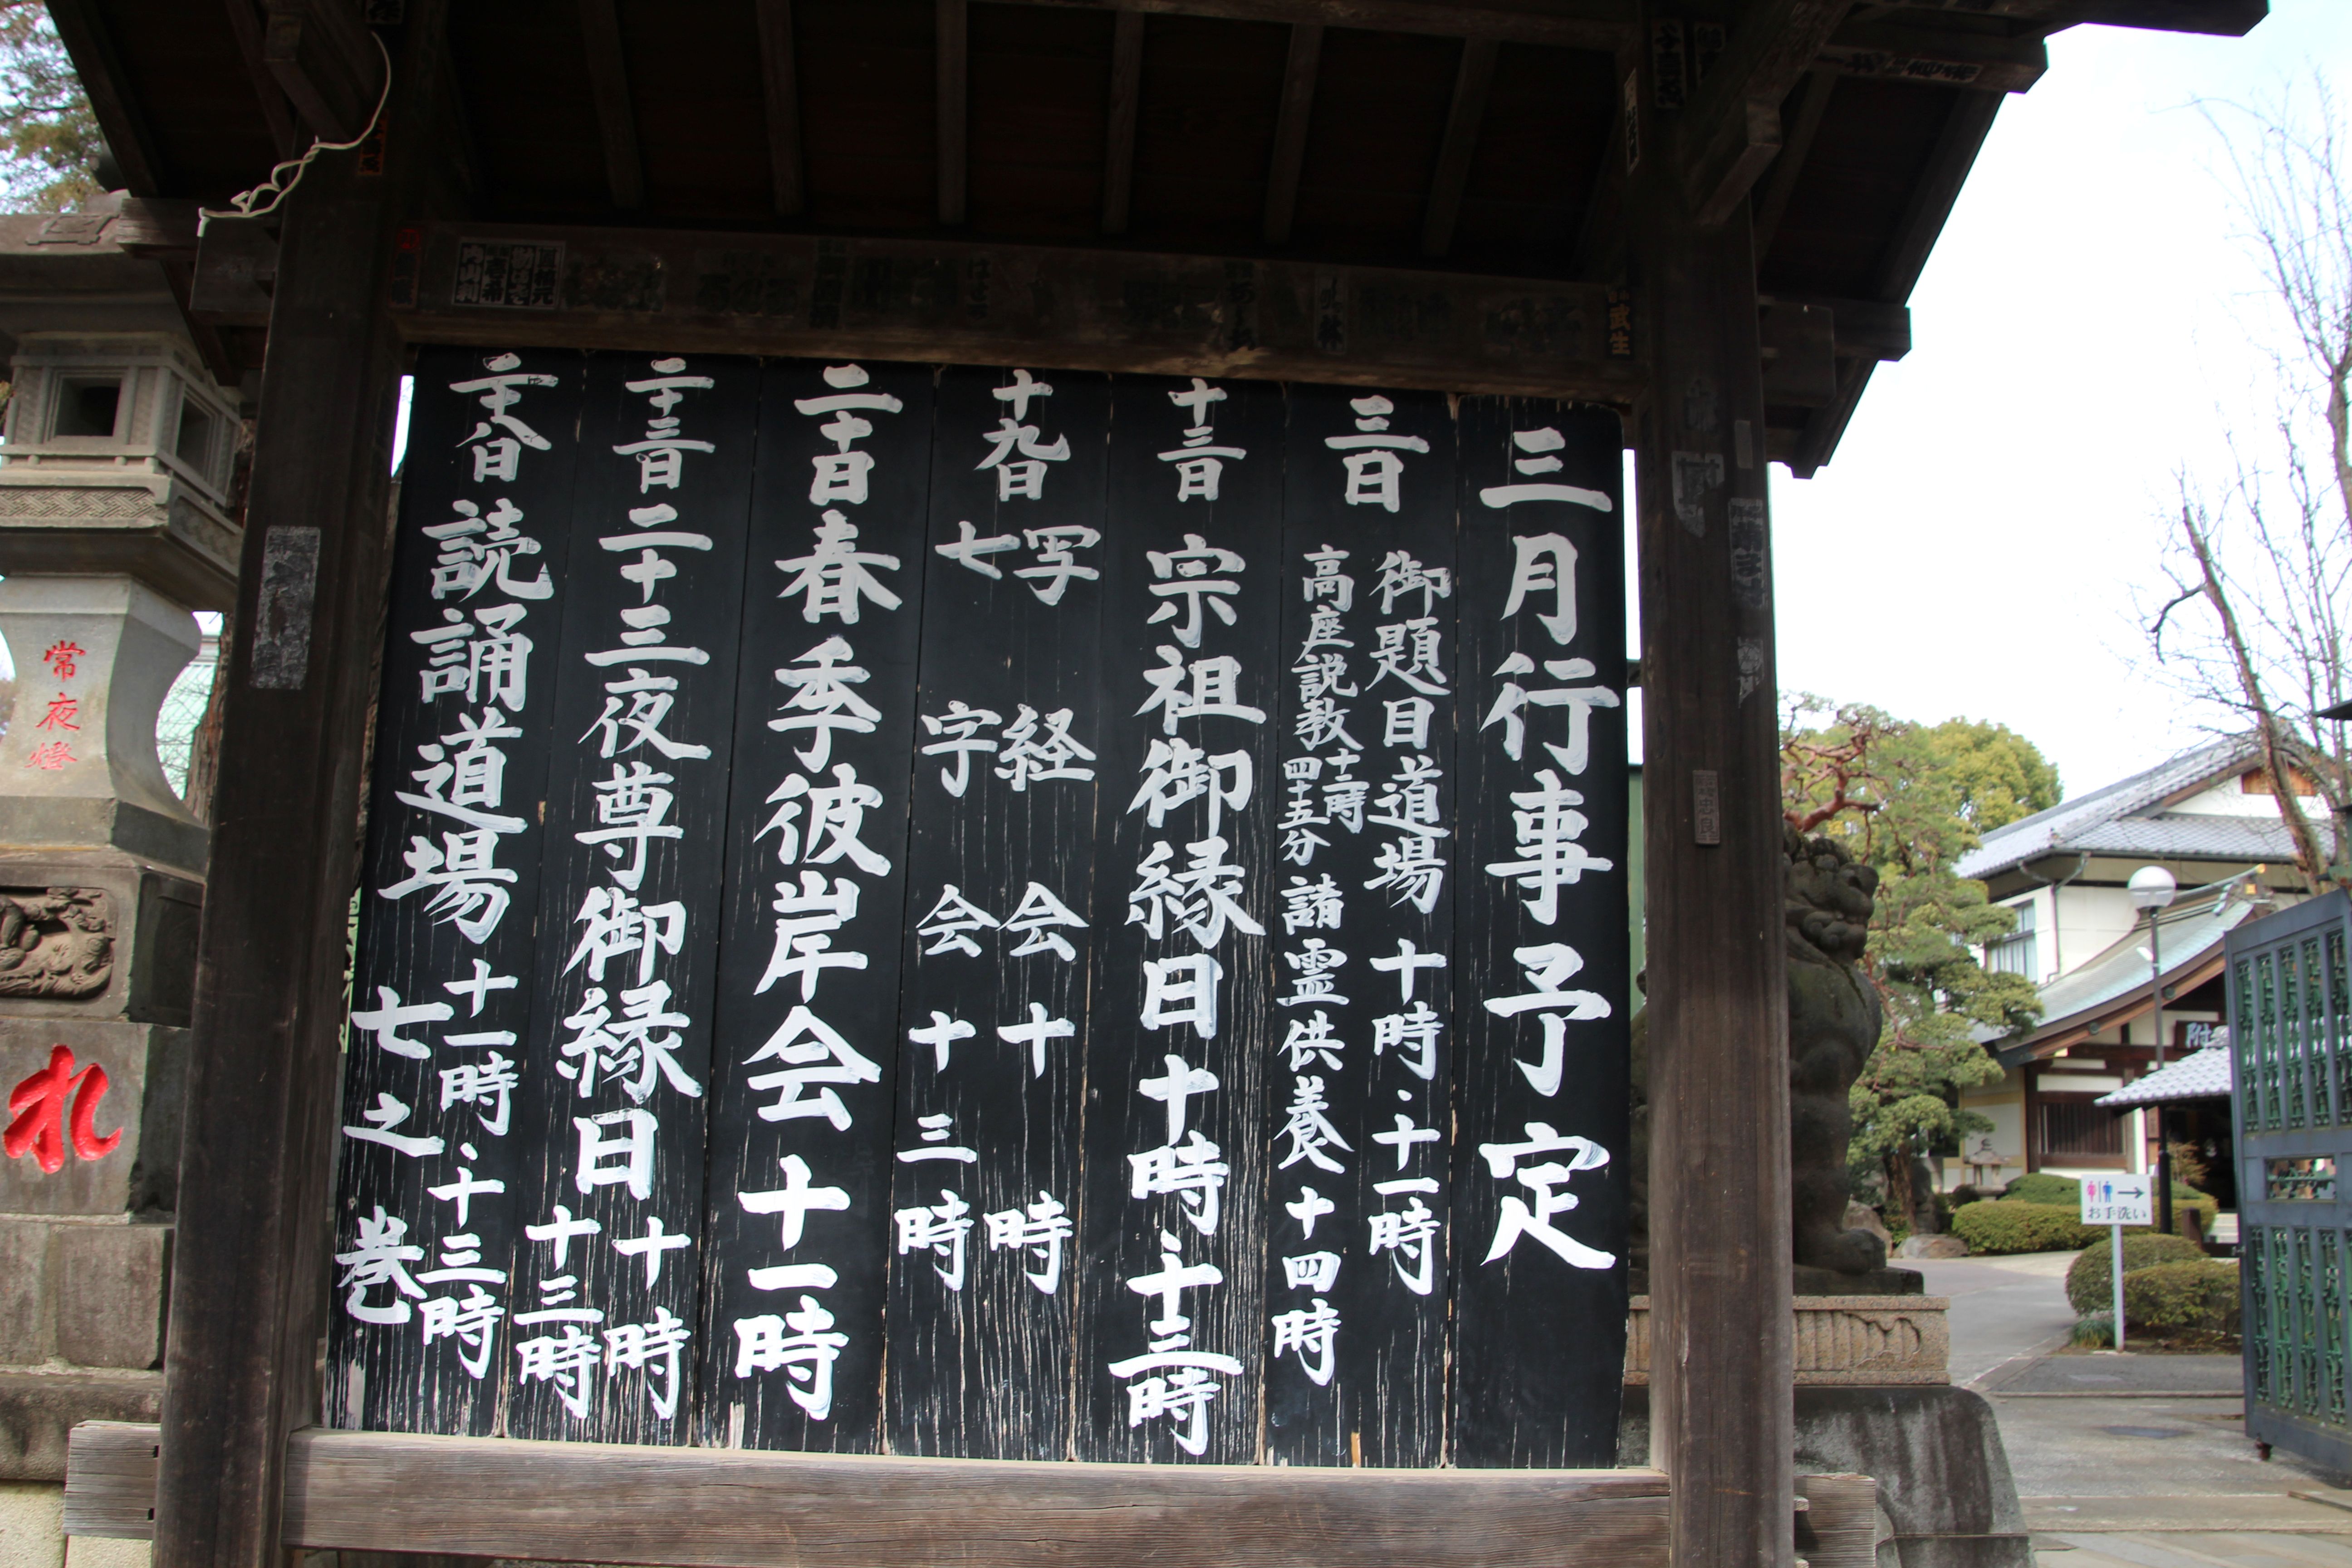 三月行事予定
三日
御題目道場 十時・十一時
高座説教 十二時四十五分 諸霊供養 十四時
十三日 宗祖御縁日 十時・十三時
十九日
写経会 十時
七字会 十三時
二十日 春季彼岸会 十一時
二十三日 二十三夜尊御縁日 十時
十三時
二十八日 読誦道場 十一時・十三時
七之巻
常夜燈
れ
お手洗い